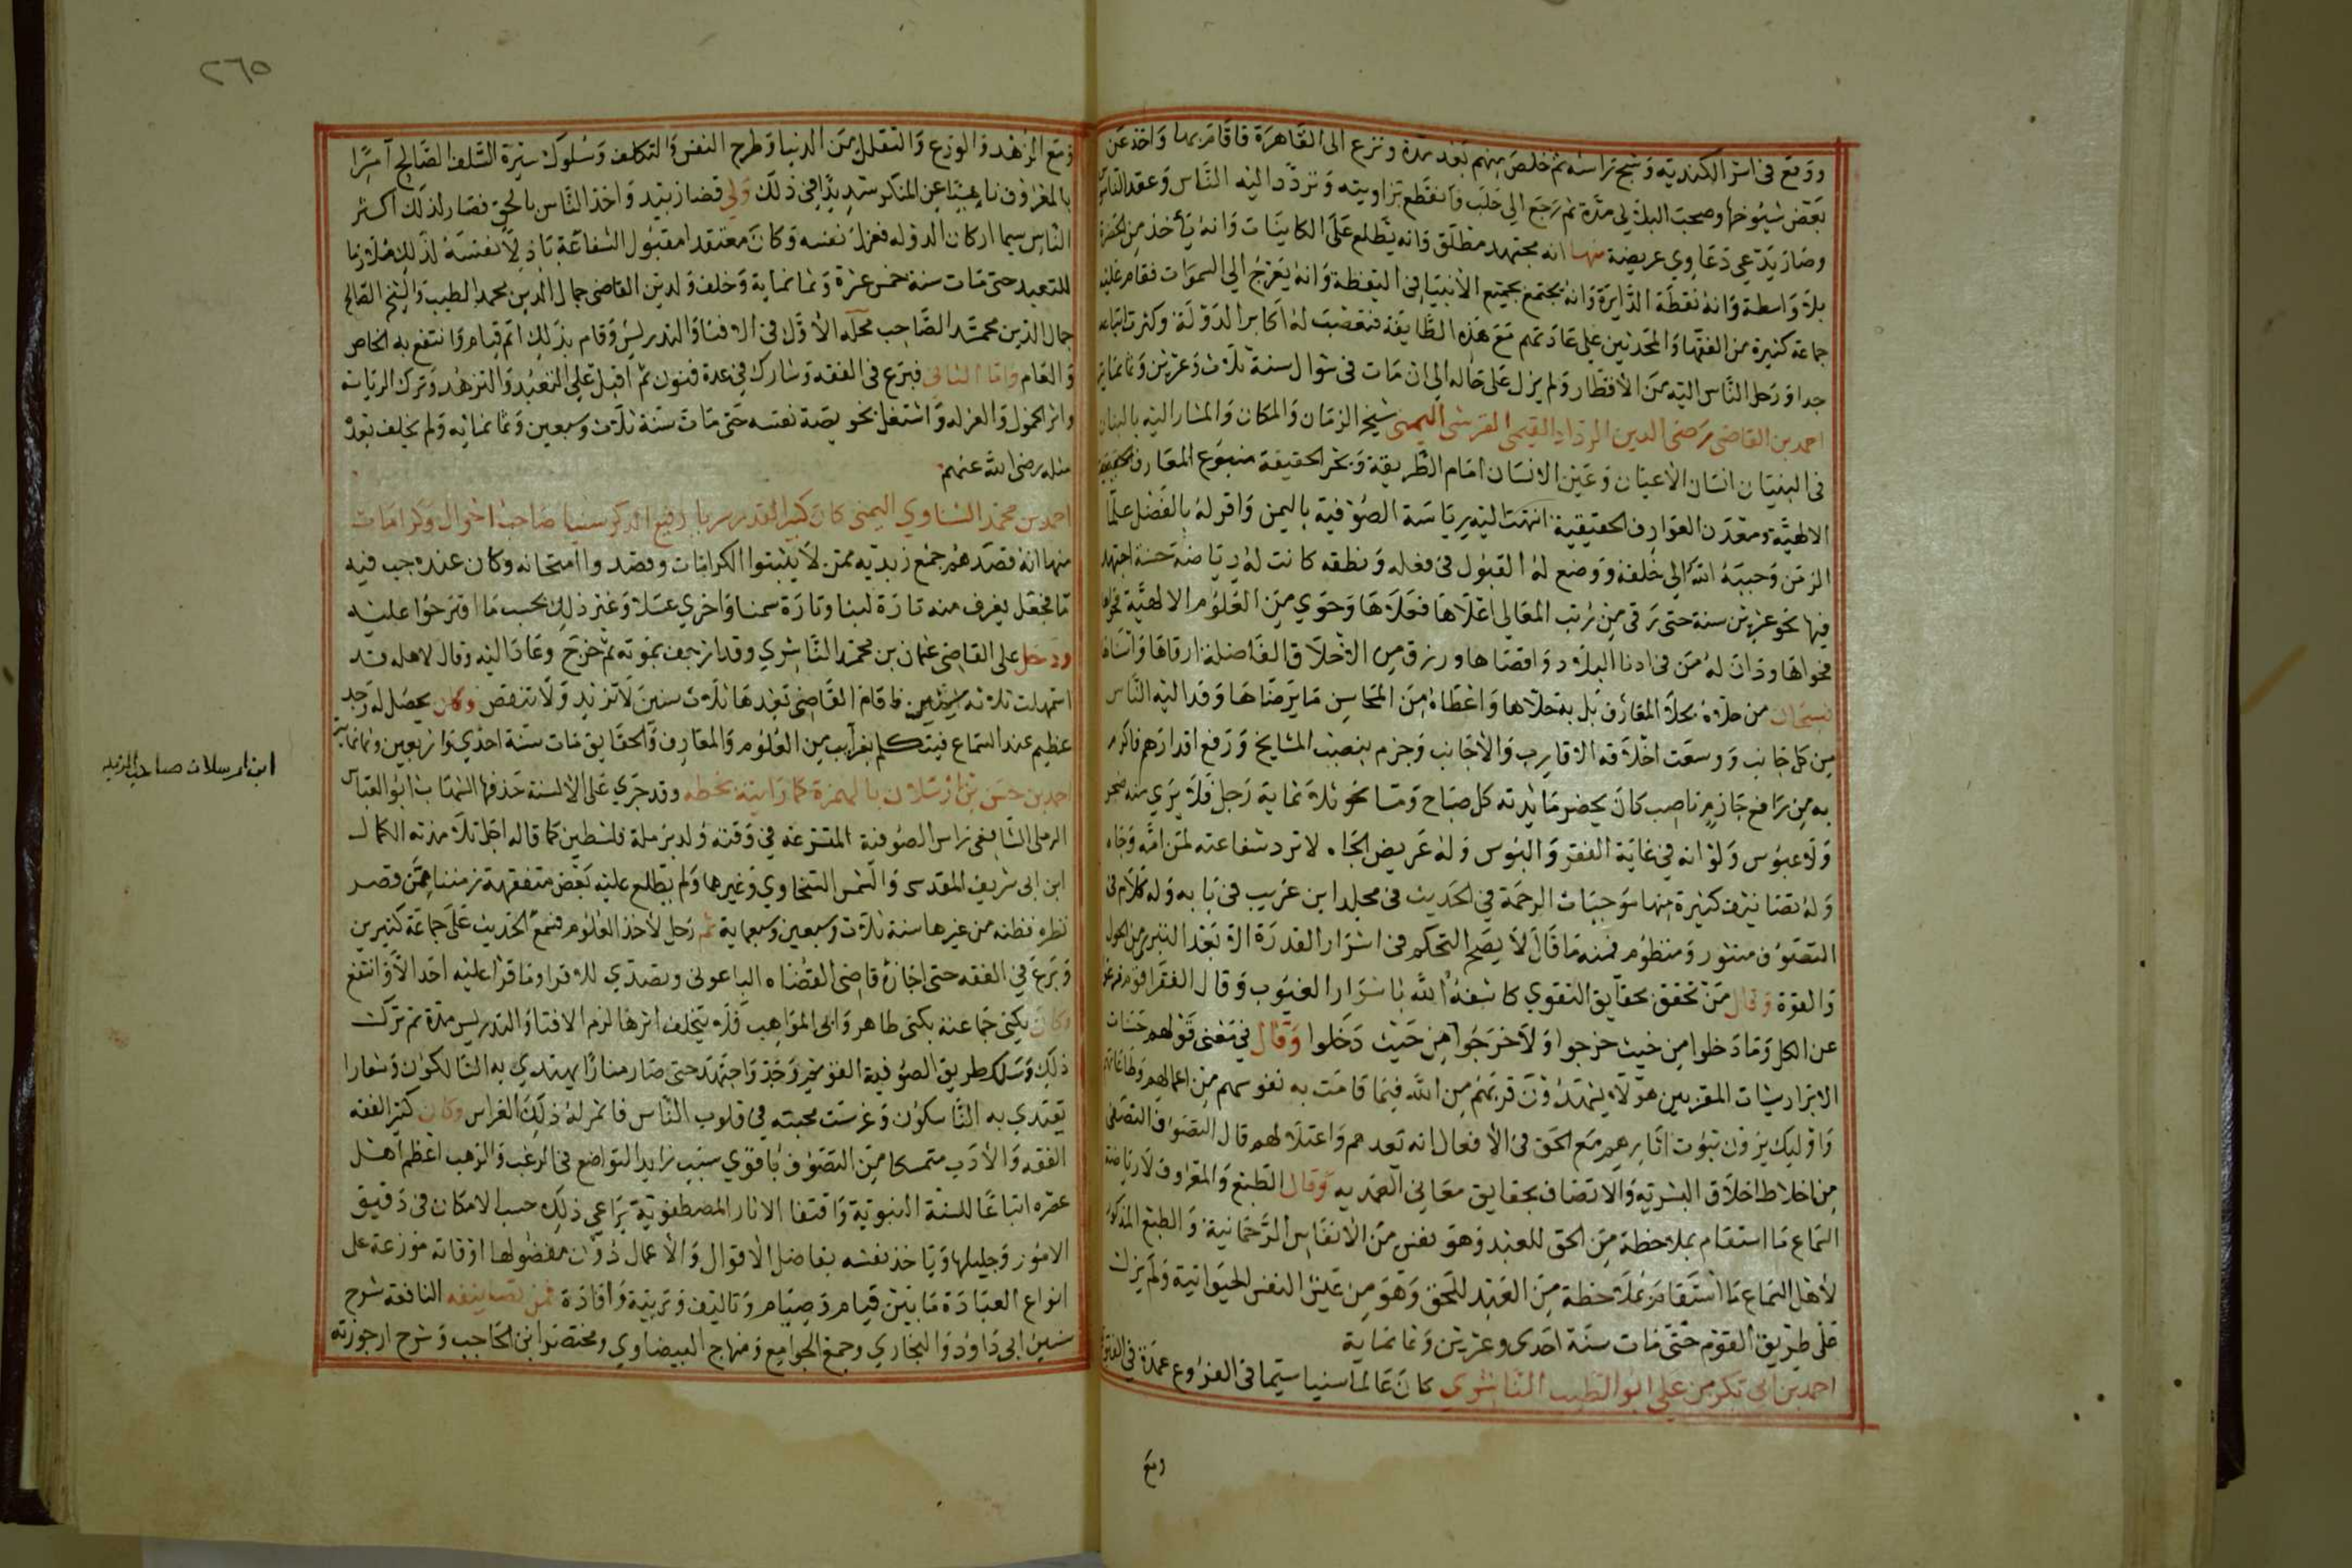 ووقع في اسر الكندية وشج راسه ثم خلص منهم بعد مدة ونزع الى القاهرة فاقام بها واخذ عن
بعض شيوخها وصحب البلالي مدة ثم رجع الى حلب فانقطع بزاويته وتردد اليه الناس وعقد الناس
وصار يدعي دعاوي عريضة منها انه مجتهد مطلق وانه يطلع على الكاينات وانه ياخذ من الحضرة
بلا واسطة وانه نقطة الدايرة وانه يجتمع بجميع الانبيا في اليقظة وانه يعرج الي السموات فقام عليه
جماعة كثيرة من الفقها والمحدثين على عادتهم مع هذه الطايفة فتعصبت له اكابر الدولة وكثرت اتباعه
جدا ورحل الناس اليه من الاقطار ولم يزل على حاله الى ان مات في شوال سنة ثلاث وعشرين وثمانماية
احمد بن القاضي رضى الدين الرداد القيمي القرشى اليمنى شيخ الزمان والمكان والمشار اليه بالبنان
فى البنيان انسان الاعيان وعين الانسان امام الطريقة وبحر الحقيقة منبوع المعارف
الالهية ومعدن العوارف الحقيقية انتهت اليه رياسة الصوفية باليمن واقر له بالفضل علما
الزمن وحببه الله الى خلقه ووضع له القبول في فعله ونطقه كانت له رياضة حسنة اجتهد
فيها نحو عشرين سنة حتى رقى من رتب المعالى اعلاها فعلاها وحوي من العلوم الالهية
فحواها ودان له من فى ادنا البلاد واقصاها ورزق من الاخلاق الفاضلة ارقاها
فسبحان من حلاه بحلا المعارف بل به حلاها واعطاه من المحاسن ما يرضاها وفد اليه الناس
من كل جانب ووسعت اخلاقه الاقارب والاجانب وجزم بنصب المشايخ ورفع اقدارهم فاكرم
به من رافع جازم ناصب كان يحضر مايدته كل صباح ومسا نحو ثلاثماية رجل فلا يري منه ضجر
ولا عبوس ولو انه في غاية الفقر والبوس وله عريض الجاه لا ترد شفاعته لمن امه وجاه
وله تصانيف كثيرة منها موجبات الرحمة في الحديث في مجلد ابن غريب في بابه وله كلام فى
التصوف منثور ومنظوم فمنه ما قال لا يصح التحكم في اسرار القدرة الا بعد التبري من الحول
والقوة وقال من تحقق بحقايق التقوي كاشفه الله باسرار الغيوب وقال الفقرا قوم
عن الكل وما دخلوا من حيث خرجوا ولا خرجوا من حيث دخلوا وقال في معنى قولهم حسنات
الابرار سيات المقربين هولا يشهدون قربهم من الله فيما قامت به نفوسهم من اعمالهم وطاعاتهم
واوليك يرون ثبوت اثارهم مع الحق في الافعال انه بعدهم واعتلا لهم قال التصوف التصلى
من اخلاط اخلاق البشرية والاتصاف بحقايق معاني العبدية وقال الطبع والمعروف لارباضة
السماع ما استقام بملاحظة من الحق للعبد وهو نفس من الانفاس الرحمانية والطبع المذكور
لاهل السماع ما استقام بملاحظة من العبد للحق وهو من عين النفس الحيوانية ولم يزل
على طريق القوم حتى مات سنة احدى وعشرين وثمانماية
احمد بن ابى بكر بن على ابو الطيب الناشري كان عالما سنيا سيما في الفروع عمدة في الفتوى
ومع
٢٦٥
ومع الزهد والورع والتقلل من الدنيا وطرح النفس والتكلف وسلوك سيرة السلف الصالح آمرا
بالمعروف ناهيا عن المنكر شديدا في ذلك ولي قضا زبيد واخذ الناس بالحق فصار لذلك اكثر
الناس سيما اركان الدوله فعزل نفسه وكان معتقدا مقبول الشفاعة باذلا نفسه لذلك ملازما
للتعبد حتى مات سنة خمس عشرة وثمانماية وخلف ولدين القاضي جمال الدين محمد الطيب والشيخ الصالح
جمال الدين محمد الصاحب محله الاول في الافتا والتدريس وقام بذلك اتم قيام وانتفع به الخاص
والعام واما الثانى فبرع في الفقه وشارك في عدة فنون ثم اقبل على التعبد والتزهد وترك الرياسة
واثر الخمول والعزله واشتغل بخويصة نفسه حتى مات سنة ثلاث وسبعين وثمانمايه ولم يخلف بعده
مثله رضى الله عنهم
احمد بن محمد الشاوي اليمنى كان كبير القدر سريا رفيع الذكر سنيا صاحب احوال وكرامات
منها انه قصدهم جمع زيديه ممن لا يثبتوا الكرامات وقصدوا امتحانه وكان عنده جب فيه
ما فجعل يغرف منه تارة لبنا وتارة سمنا واخري عسلا وغير ذلك بحسب ما اقترحوا عليه
ودخل على القاضى عثمان بن محمد الناشري وقد ارجف بموته ثم خرج وعاد اليه وقال لاهله قد
استمهلت ثلاثه سنين فاقام القاضى بعدها ثلاث سنين لا تزيد ولا تنقص وكان يحصل له وجد
عظيم عند السماع فيتكلم بغرايب من العلوم والمعارف والحقايق مات سنة احدي واربعين وثمانماية
احمد بن حسن بن ارسلان بالهمزة كما رايته بخطه وقد جري على الالسنة حذفها الشهاب ابو العباس
الرملى الشافعى راس الصوفية المتشرعة في وقته ولد برملة فلسطين كما قاله اجل تلامذته الكمال
ابن ابى شريف المقدسى والشمس السخاوي وغيرهما ولم يطلع عليه بعض متفقهة زمننا ممن قصر
نظره فظنه من غيرها سنة ثلاث وسبعين وسبعماية ثم رحل لاخذ العلوم فسمع الحديث على جماعة كثيرين
وبرع في الفقه حتى اجازه قاضى القضاه الباعونى وتصدي للاقرا وما قرا عليه احد الا وانتفع
وكان يكنى جماعته بكنى طاهر وابى المواهب فلا يتخلف اثرها لزم الافتا والتدريس مدة ثم ترك
ذلك وسلك طريق الصوفية القويم وجد واجتهد حتى صار منارا يهتدي به السالكون وشعارا
يقتدي به الناسكون وغرست محبته في قلوب الناس فاثمر له ذلك الغراس وكان كثير الفقه
الفقه والادب متمسكا من التصوف باقوي سبب زايد التواضع في الرغب والرهب اعظم اهل
عصره اتباعا للسنة النبوية واقتفا الاثار المصطفوية يراعي ذلك حسب الامكان في دقيق
الامور وجليلها وياخذ نفسه بفاضل الاقوال والاعمال دون مفضولها اوقاته موزعة على
انواع العبادة ما بين قيام وصيام وتاليف وتربية وافادة فمن تصانيفه النافعة شرح
سنن ابى داود والبخاري وجمع الجوامع ومنهاج البيضاوي ومختصر ابن الحاجب وشرح ارجوزته
ابن ارسلان صاحب الزبد